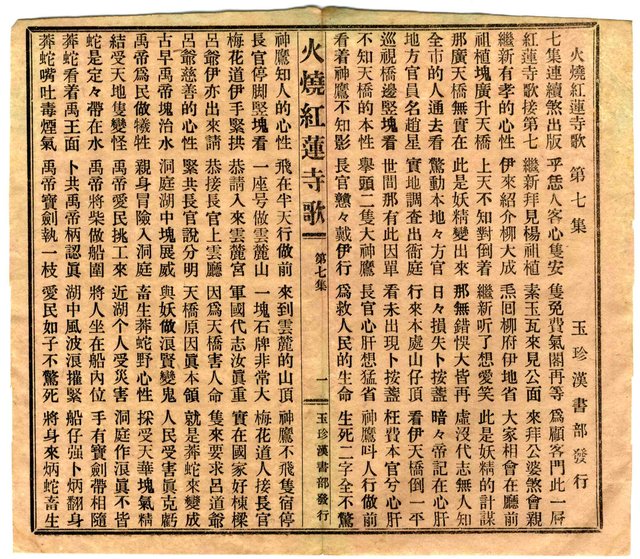 火燒紅蓮寺歌 第七集 玉珍漢書部發行
七集連續煞出版 乎恁人客心隻安 隻免費氣閣再等 為顧客門此一層
紅蓮寺歌接第七 繼新拜見楊祖植 素玉瓦來見公面 來拜公婆煞會親
繼新有孝的心性 伊來紹介柳大成 𢘆回柳府伊地省 大家相會在廳前
祖植塊廣升天橋 上天不知對倒着 繼新听了想愛笑 此是妖精的計謀
那廣天橋無實在 此是妖精變出來 那無錯悞大皆再 虛沒代志無人知
全市的人通去看 驚動本地々方官 日々損失卜按盞 暗々帝記在心肝
地方官員名趙星 實地調查出衙庭 行來本處山仔頂 看伊天橋倒一平
巡視橋邊竪塊看 世間那有此因單 看未出現卜按盞 枉費本官兮心肝
不知天橋的本性 舉頭二隻大神鷹 長官心肝想猛省 神鷹叫人行做前
看着神鷹不知影 長官戇々戴伊行 為救人民的生命 生死二字全不驚
火燒紅蓮寺歌 第七集 一 玉珍漢書部發行
神鷹知人的心性 飛在半天行做前 來到雲麓的山頂 神鷹不飛隻宿停
長官停脚竪塊看 一座号做雲麓山 一塊石牌非常大 梅花道人接長官
梅花道伊手緊拱 恭請入來雲麓宮 軍國代志汝眞重 實在國家好棟樑
呂爺伊亦出來請 恭接長官上雲廳 因爲天橋害人命 隻要來求呂道爺
呂爺慈善的心性 緊共長官說分明 天橋原因眞本領 就是莽蛇來變成
古早禹帝塊治水 洞庭湖中塊展威 與妖做浪賢變鬼 人民受害眞克虧
禹帝爲民做犧牲 親身冒險入洞庭 畜生莽蛇野心性 採受天華塊氣精
結受天地隻變怪 禹帝愛民挑工來 近湖个人受災害 洞庭作浪眞不皆
蛇是定々帶在水 禹帝將柴做船圍 將人坐在船內位 手有寶劍帶相隨
莽蛇看着禹王面 卜共禹帝柄認眞 湖中風波浪摧緊 船仔强卜炳翻身
莽蛇嘴吐毒煙氣 禹帝寶劍執一枝 愛民如子不驚死 將身來炳蛇畜生